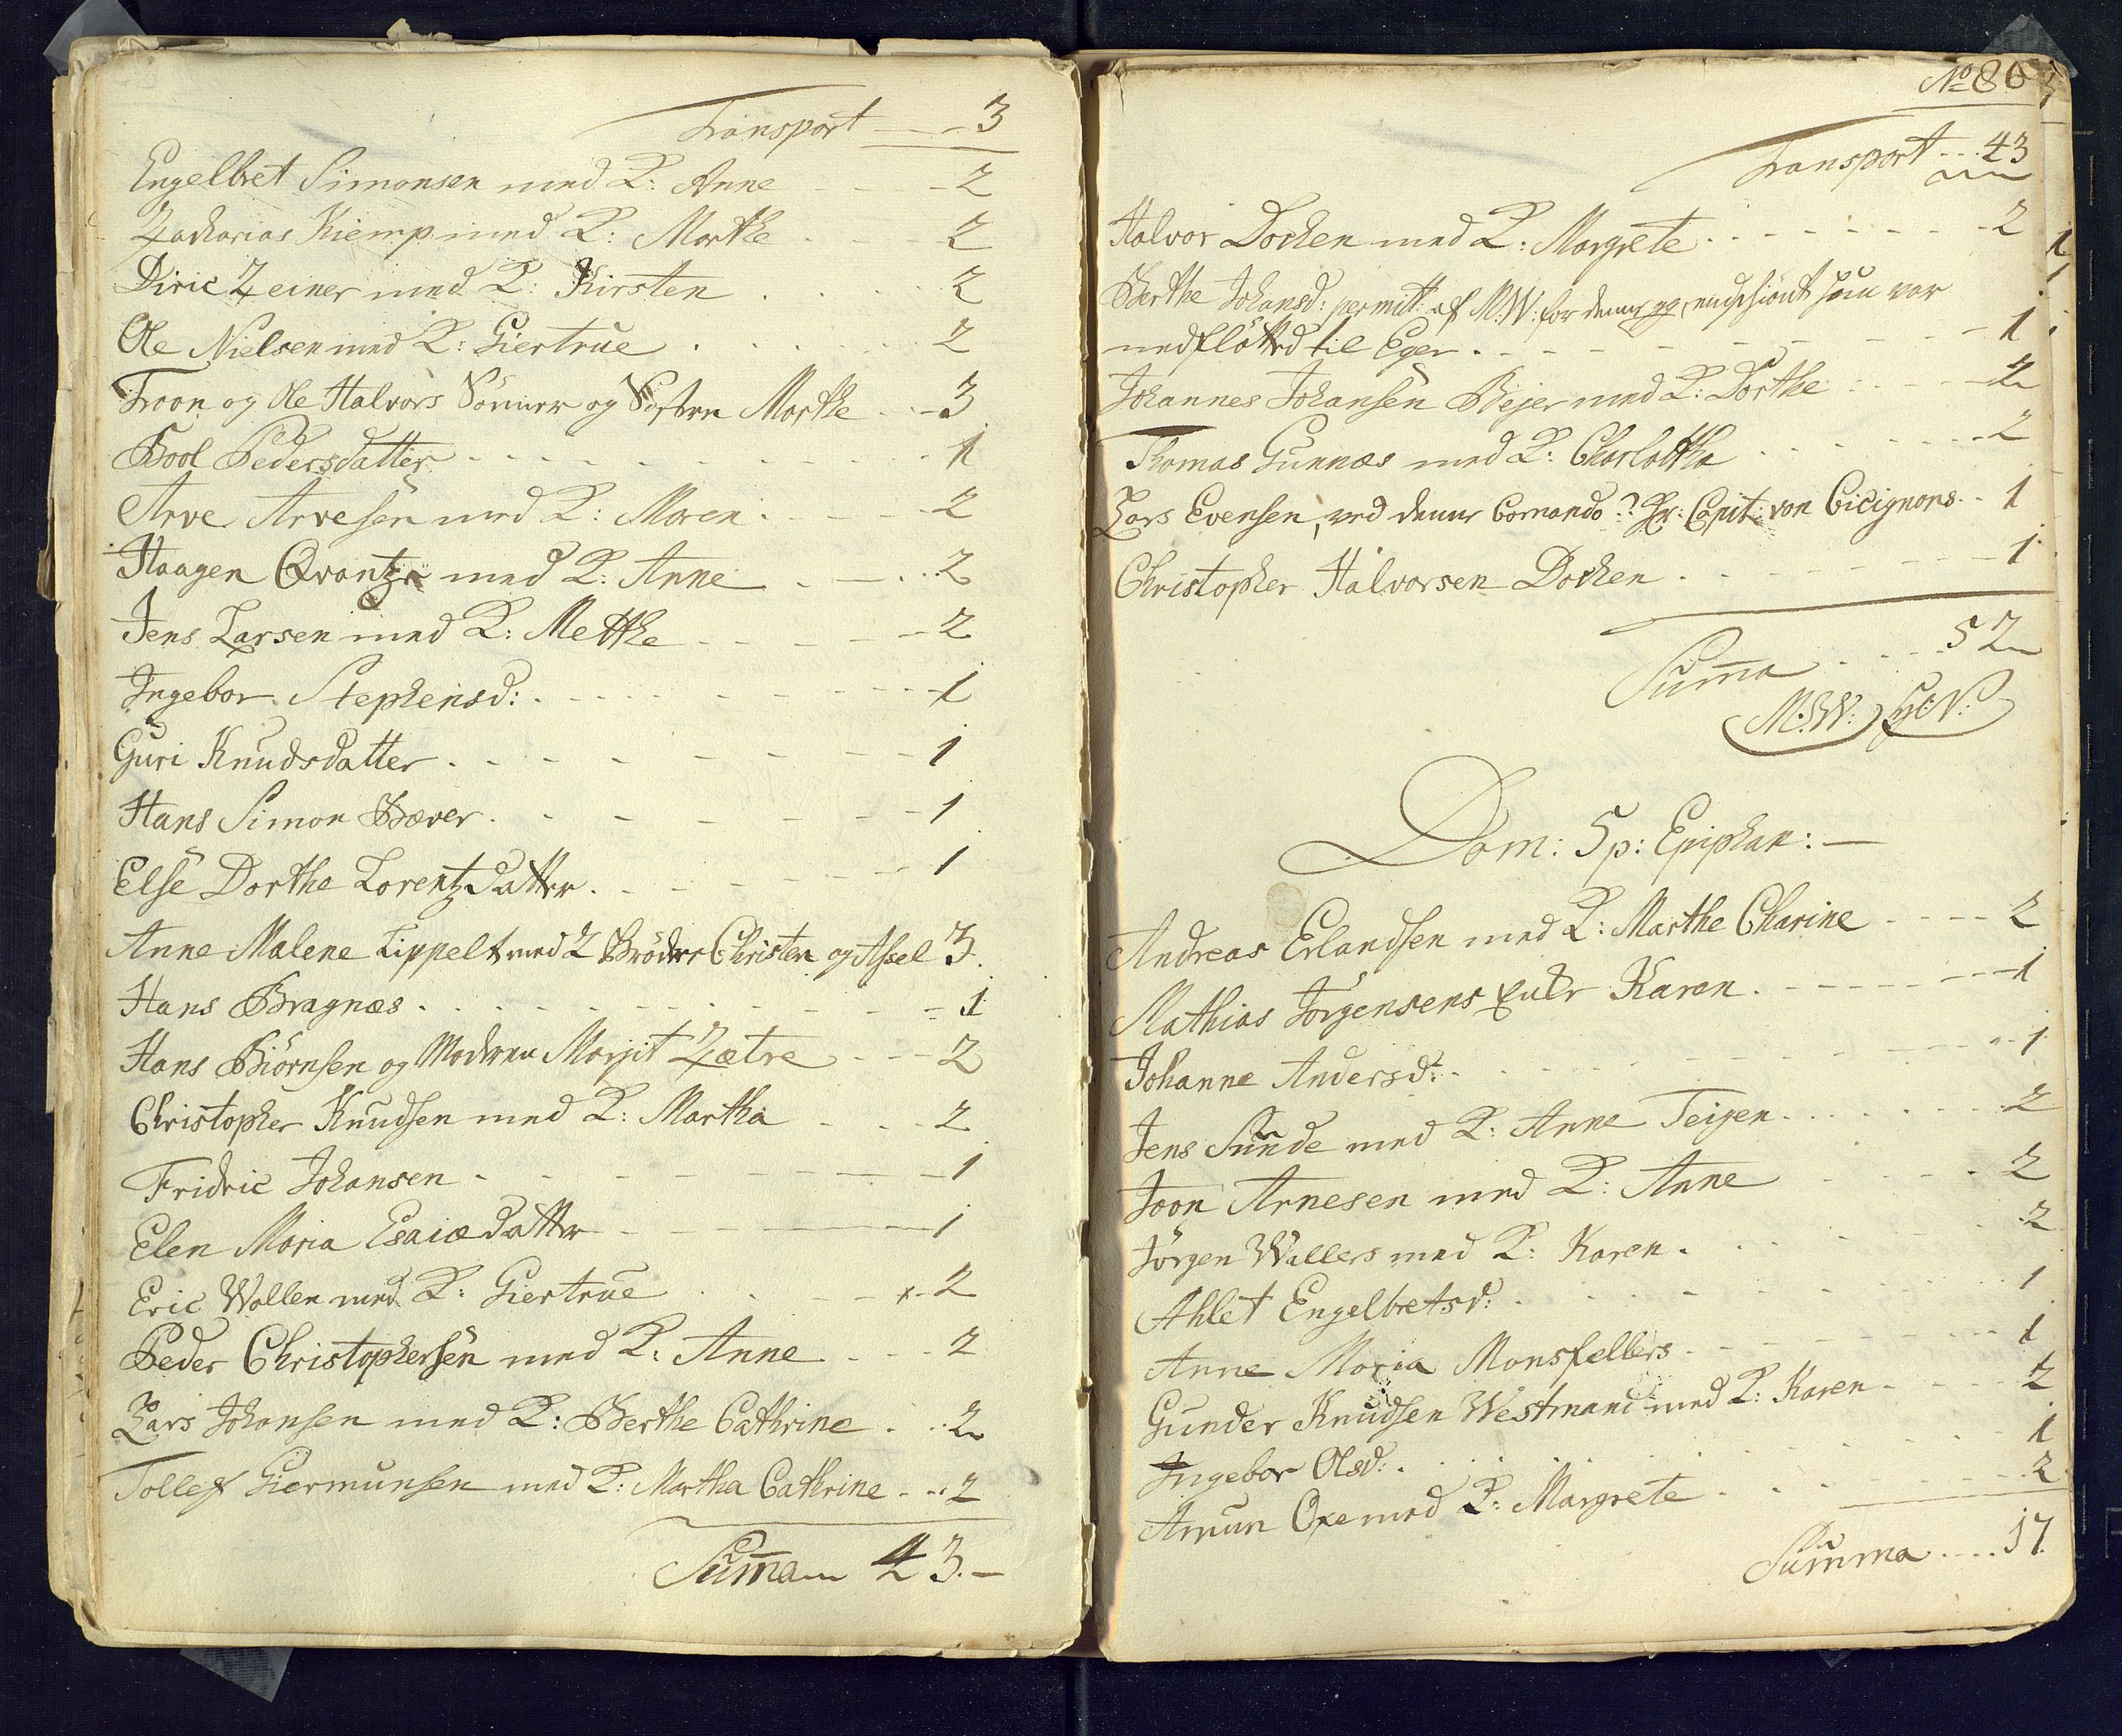 Transport - - - 3
Engelbret Simonsen med K: Anne - - - 2
Zacharias Kiemp med K: Marthe - - 2
Diric Zeiner med K: Kirsten - - - 2
Ole Nielsen med K: Giertrue - - - 2
Troon og Ole Halvors Sönner og Söstren Marthe - - 3
Bool Pedersdatter - - - 1
Arve Arvesen med K: Maren - - - 2
Haagen Qvantz med K: Anne - - - 2
Jens Larsen med K: Mette - - - 2
Ingebor Stephensd: - - - 1
Guri Knudsdatter - - - 1
Hans Simon Bæver - - - 1
Else Dorthe Lorentzdatter - - - 1
Anne Malene Lippelt med 2 Brödre Christen og Assel 3.
Hans Bragnæs - - - 1
Hans Biörnsen og Moderen Margit Zætre - - - 2
Christopher Knudsen med K: Martha - - - 2
Fridric Johansen - - - 1
Elen Maria Esaiædatter - - - 1
Eric Wollen med K: Giertrue - - - 2
Peder Christophersen med K: Anne - - - 2
Lars Johansen med K: Berthe Cathrine - - 2
Tollef Giermunsen med K: Martha Cathrine - - 2
Summa 43.
No 86
Transport - - 43
Halvor Docken med K: Margrete - - - 2
Berthe Johansd: permitt: af M:W: for denne gg, endskiönt hun var
nedflötted til Eger - - - 1
Johannes Johansen Bejer med K: Dorthe - - - 2
Thomas Gunnæs med K: Charlotha - - - 2
Lars Evensen, ved denne Comando Hr: Capit: von Cicignons - - 1
Christopher Halvorsen Docken - - - 1
Summa - - - 52
M:W: H:N:
Dom: 5 p: Epiphan: —
Andreas Erlandsen med K: Marthe Charine - - - 2
Mathias Jörgensens Enke Karen - - - 1
Johanne Andersd: - - - 1
Jens Sunde med K: Anne Teigen - - - 2
Joon Arnesen med K: Anne - - - 2
Jörgen Wallers med K: Karen - - - 2
Ahlet Engelbretsd: - - - 1
Anne Maria Monsfellers - - - 1
Gunder Knudsen Westmand med K: Karen - - - 2
Ingebor Olsd: - - - 1
Amun Oxe med K: Margrete - - - 2
Summa - - - 17